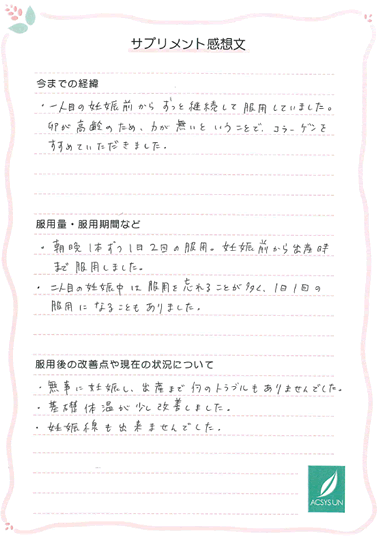 サプリメント感想文
今までの経緯
・一人目の妊娠前からずっと継続して服用していました。
卵が高齢のため、力が無いということで、コラーゲンを
すすめていただきました。
服用量・服用期間など
・朝晩1本ずつ1日2回の服用。妊娠前から出産時
まで服用しました。
・二人目の妊娠中は服用を忘れることが多く、1日1回の
服用になることもありました。
服用後の改善点や現在の状況について
・無事に妊娠し、出産まで何のトラブルもありませんでした。
・基礎体温が少し改善しました。
・妊娠線も出来ませんでした。
ACSYSUN